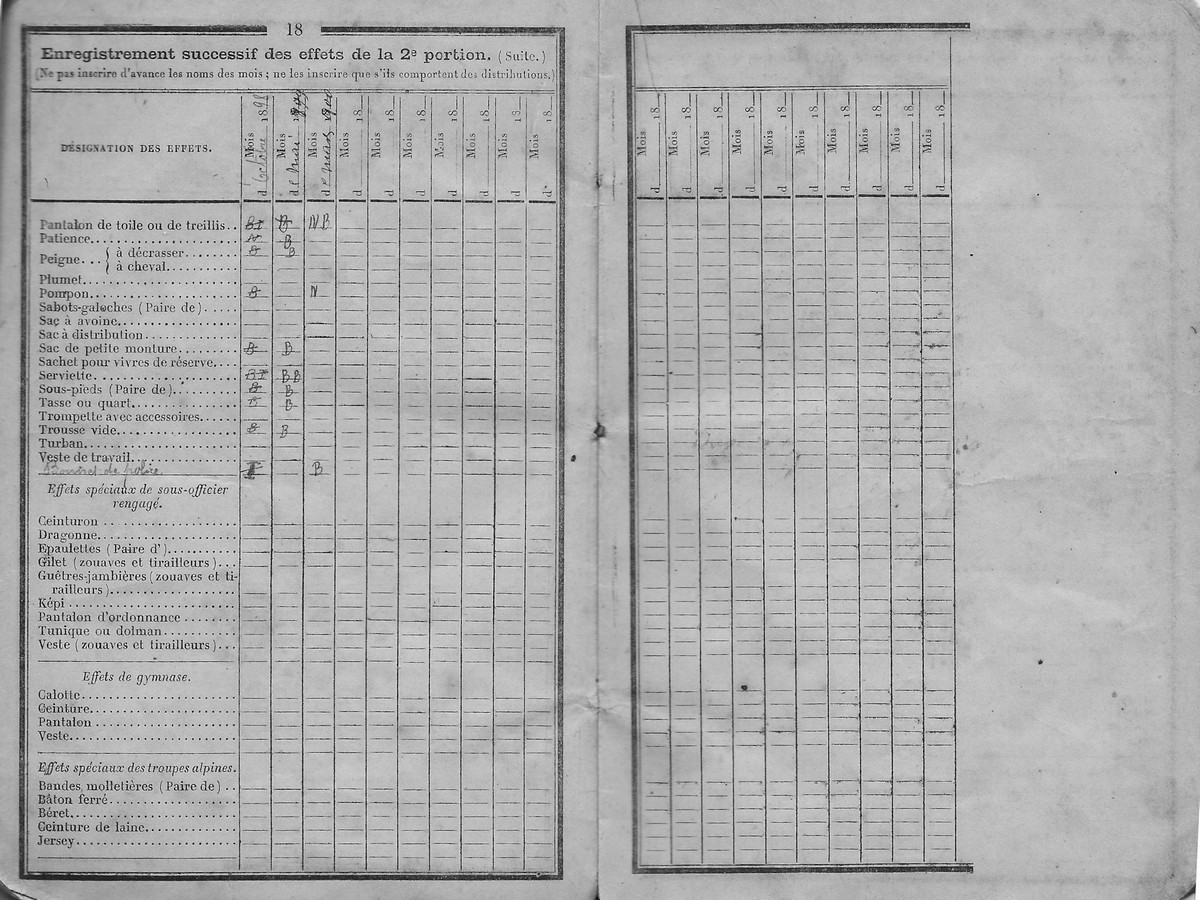 18
Enregistrement successif des effets de la 2e portion. (Suite.)
(Ne pas inscrire d'avance les noms des mois ; ne les inscrire que s'ils comportent des distributions.)
DÉSIGNATION DES EFFETS.
Mois d' octobre 1898
Mois de mai 1899
Mois de mars 1900
Mois d 18
Mois d 18
Mois d 18
Mois d 18
Mois d 18
Mois d 18
Mois d 18
Pantalon de toile ou de treillis.. BI B NB
Patience.................... N B
Peigne... { à décrasser........ B B
à cheval...........
Plumet......................
Pompon..................... B N
Sabots-galoches (Paire de).....
Sac à avoine.................
Sac à distribution..............
Sac de petite monture......... B B
Sachet pour vivres de réserve....
Serviette..................... BI BB
Sous-pieds (Paire de).......... B B
Tasse ou quart................ B B
Trompette avec accessoires......
Trousse vide.................. B B
Turban......................
Veste de travail...............
Bonnet de police I B
Effets spéciaux de sous-officier
rengagé.
Ceinturon ....................
Dragonne.....................
Epaulettes (Paire d')...........
Gilet (zouaves et tirailleurs)...
Guêtres-jambières (zouaves et ti-
railleurs)...................
Képi ........................
Pantalon d'ordonnance ........
Tunique ou dolman...........
Veste (zouaves et tirailleurs)...
Effets de gymnase.
Calotte......................
Ceinture.....................
Pantalon ....................
Veste........................
Effets spéciaux des troupes alpines.
Bandes molletières (Paire de) ..
Bâton ferré...................
Béret........................
Ceinture de laine..............
Jersey.......................
Mois d 18
Mois d 18
Mois d 18
Mois d 18
Mois d 18
Mois d 18
Mois d 18
Mois d 18
Mois d 18
Mois d 18